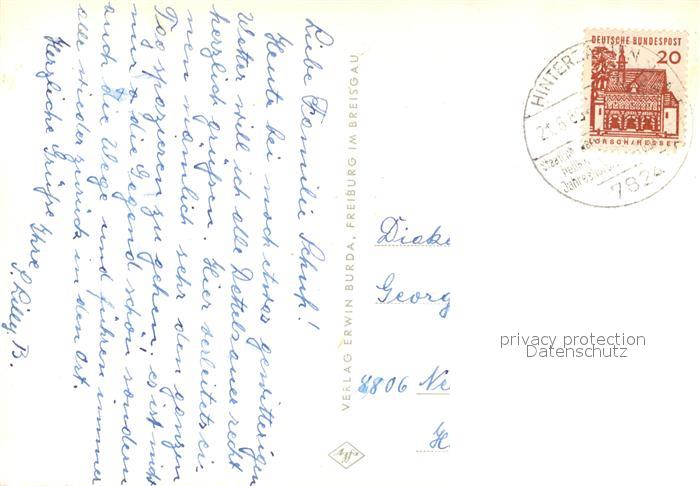 Liebe Familie Schuh!
Heute bei noch etwas gewitterigen
Wetter will ich alle Dettelsauer recht
herzlich grüßen. Hier verleitet ei-
nen nämlich sehr den ganzen
Tag spazieren zu gehen; es ist nicht
nur die Gegend schön, sondern
auch die Wege und führen immer
alle wieder zurück in den Ort.
Herzliche Grüße Ihre
S. Lilly B.
VERLAG ERWIN BURDA, FREIBURG IM BREISGAU
DEUTSCHE BUNDESPOST
20
LORSCH/HESSEN
HINTERZARTEN
7824
Diake
Georg
8806 Ne
H
privacy protection
Datenschutz